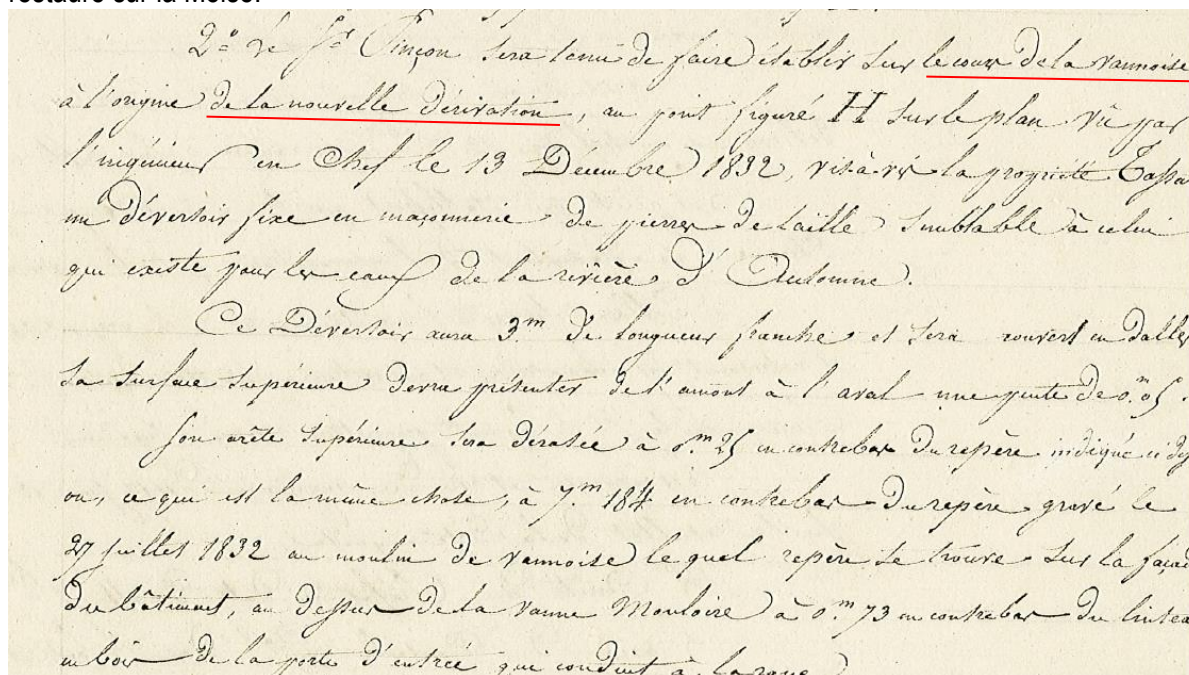 restauré sur la même.
2° le Sr Pinçon sera tenu de faire établir sur le cours de la Vannoise
à l'origine de la nouvelle dérivation, au point figuré H sur le plan vu par
l'ingénieur en Chef le 13 Décembre 1832, vis à vis la propriété
un déversoir fixe en maçonnerie de pierres de taille semblable à celui
qui existe pour les eaux de la rivière d'Automne.
Ce Déversoir aura 3m de longueur franche et sera couvert en dalles
Sa surface supérieure devra présenter de l'amont à l'aval une pente de 0m05.
Son arête supérieure sera dérasée à 0m25 en contrebas du repère indiqué ci
ou, ce qui est la même chose, à 7m184 en contrebas du repère gravé le
27 juillet 1832 au moulin de Vannoise lequel repère se trouve sur la façad
du bâtiment, au dessus de la vanne Mouloire à 0m73 en contrebas du lintea
en bois de la porte d'entrée qui conduit à la roue